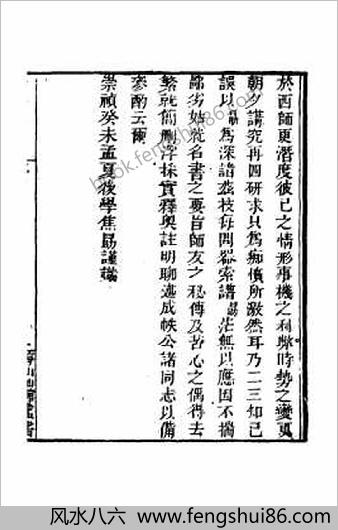 於西師更潛度彼已之情形事機之利弊時勢之變更
朝夕講究再四研求只為痴憤所激然耳乃二三知已
誤以勗為深諳茲技每問器索譜勗茫無以應因不揣
鄙劣姑就名書之要旨師友之秘傳及苦心之偶得去
繁就簡刪浮採實釋奧註明聊述成帙公諸同志以備
參酌云爾
崇禎癸未孟夏後學焦勗謹識
book.fengshui86.com
风水八六 www.fengshui86.com